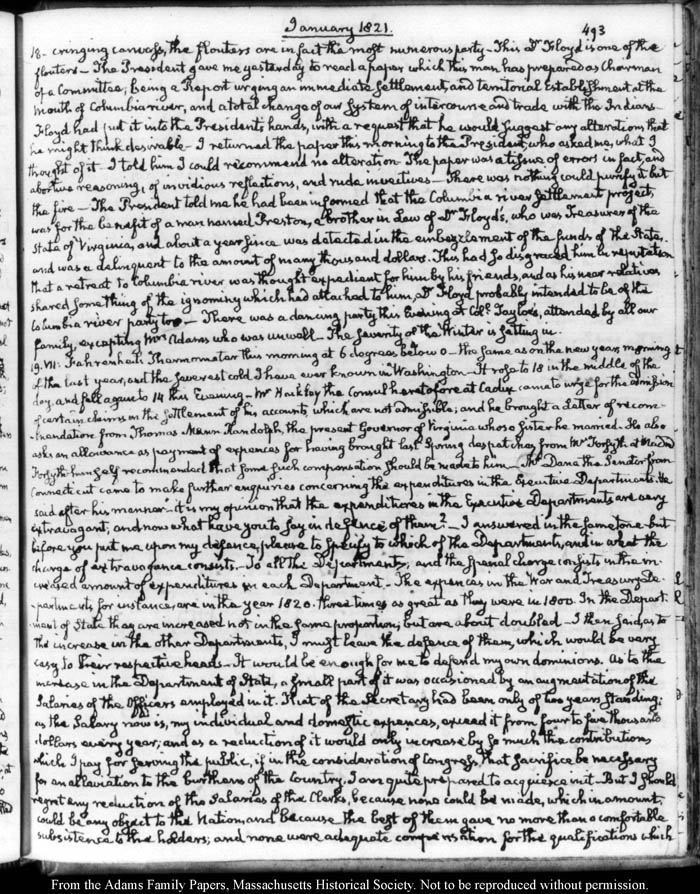 January 1821.
493
18- cringing canvass, the flouters are in fact the most numerous party - This Dr. Floyd is one of the
flouters - The President gave me yesterday to read a paper which this man has prepared as Chairman
of a Committee; being a Report urging an immediate Settlement, and territorial Establishment at the
mouth of Columbia river, and a total change of our System of intercourse and trade with the Indians -
Floyd had put it into the President's hands, with a request that he would suggest any alterations that
he might think desirable - I returned the paper this morning to the President, who asked me, what I
thought of it - I told him I could recommend no alteration - The paper was a tissue of errors in fact, and
abortive reasoning; of invidious reflections, and rude invectives - There was nothing could purify it but
the fire - The President told me he had been informed that this Columbia river Settlement project,
was for the benefit of a man named Preston, a brother in Law of Dr. Floyd's, who was Treasurer of the
State of Virginia, and about a year since was detected in the embezzlement of the funds of the State,
and was a delinquent to the amount of many thousand dollars. This had so disgraced him in reputation
that a retreat to Columbia river was thought expedient for him by his friends, and as his near relatives
shared something of the ignominy which had attached to him, Dr. Floyd probably intended to be of the
Columbia river party too - There was a dancing party this Evening at Coll. Tayloe's, attended by all our
family, excepting Mrs Adams who was unwell - The severity of the Winter is setting in.
19. VII. Fahrenheit's Thermometer this morning at 6 degrees below 0 - the same as on the new year morning
of the last year, and the severest cold I have ever known in Washington - It rose to 18 in the middle of the
day, and fell again to 14 this Evening - Mr Hackley the Consul heretofore at Cadiz came to urge for the admission
of certain claims in the settlement of his accounts which are not admissible; and he brought a Letter of recom-
mendation from Thomas Mann Randolph, the present Governor of Virginia whose Sister he married. He also
asks an allowance as payment of expences for having brought last Spring despatches from Mr Forsyth at Madrid
Forsyth himself recommended that some such compensation should be made to him - Mr Dana the Senator from
Connecticut came to make further enquiries concerning the expenditures in the Executive Departments. He
said after his manner - it is my opinion that the expenditures in the Executive Departments are very
extravagant; and now what have you to say in defence of them? - I answered in the same tone - but
before you put me upon my defence, please to specify to which of the Departments, and in what the
charge of extravagance consists. - To all the Departments; and the special charge consists in the in-
creased amount of expenditures in each Department. - The expences in the War and Treasury De-
partments for instance, are in the year 1820. three times as great as they were in 1800. In the Depart-
ment of State they are increased not in the same proportion; but are about doubled - I then said, as to
the increase in the other Departments, I must leave the defence of them, which would be very
easy to their respective heads - It would be enough for me to defend my own dominions. As to the
increase in the Department of State, a small part of it was occasioned by an augmentation of the
Salaries of the Officers employed in it. That of the Secretary had been only of two years standing;
as the Salary now is, my individual and domestic expences, exceed it from four to five thousand
dollars every year; and as a reduction of it would only increase by so much the contribution
which I pay for serving the public, if in the consideration of Congress, that sacrifice be necessary
for an alleviation to the burthens of the Country, I am quite prepared to acquiesce in it - But I should
regret any reduction of the Salaries of the Clerks, because none could be made, which in amount,
could be any object to the Nation, and because the best of them gave no more than a comfortable
subsistence to the holders; and none were adequate compensation for the qualifications which
From the Adams Family Papers, Massachusetts Historical Society. Not to be reproduced without permission.